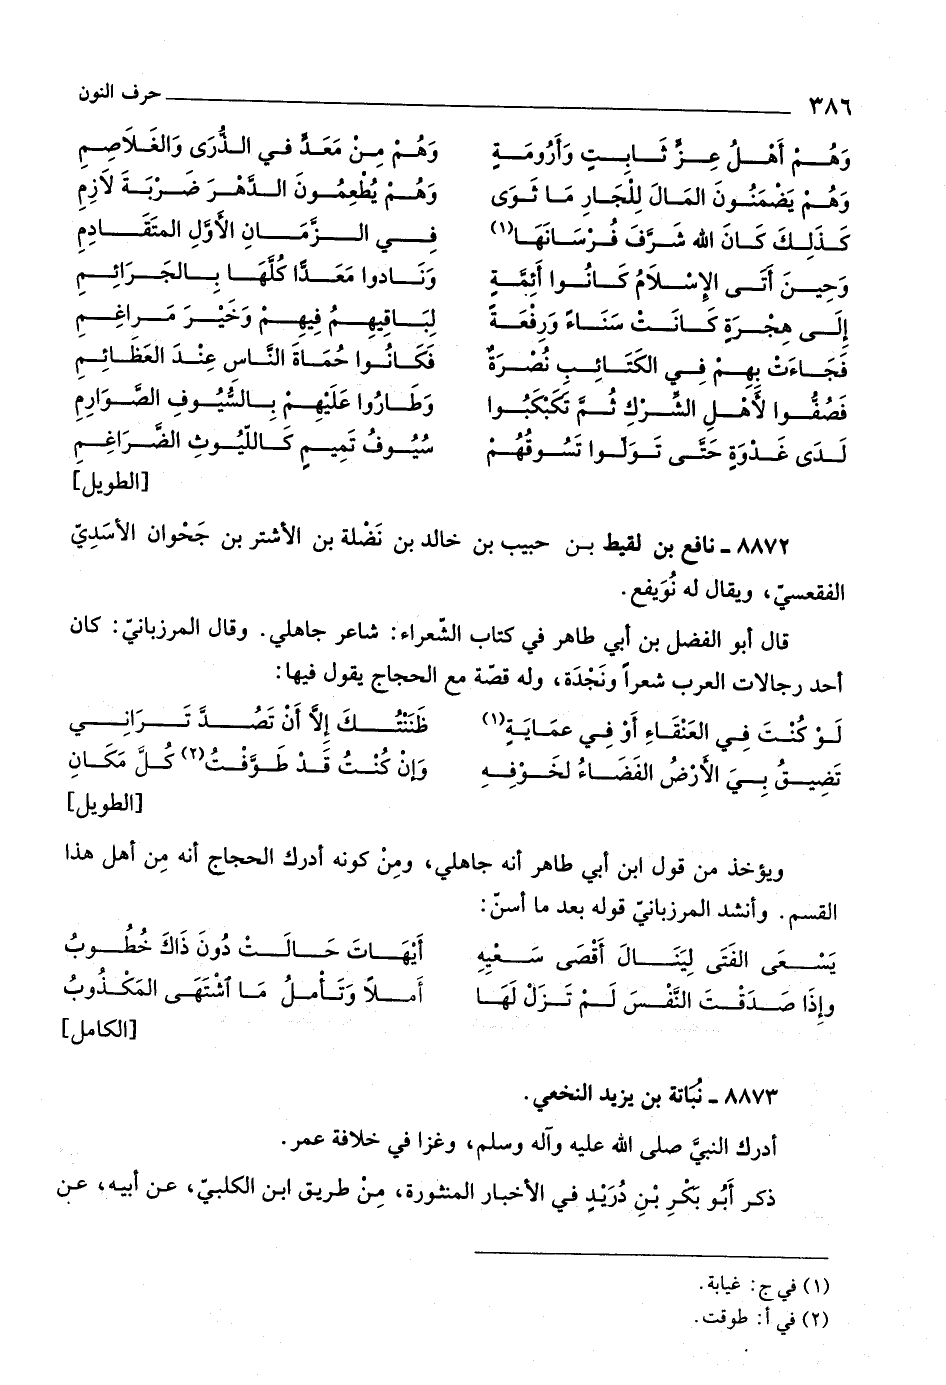 ٣٨٦ حرف النون
وَهُمْ أَهْلُ عِزٍّ ثَابِتٍ وَأَرُومَةٍ وَهُمْ مِنْ مَعَدٍّ في الذُّرَى وَالغَلَاصِمِ
وَهُمْ يَضْمَنُونَ المَالَ لِلْجَارِ مَا ثَوَى وَهُمْ يُطْعِمُونَ الدَّهْرَ ضَرْبَةَ لَازِمِ
كَذَلِكَ كَانَ الله شَرَّفَ فُرْسَانَهَا(١) فِي الزَّمَانِ الأَوَّلِ المتَقَادِمِ
وَحِينَ أَتَى الإِسْلَامُ كَانُوا أَئِمَّةٍ وَنَادوا مَعَدًّا كُلَّهَا بِالجَرَائِمِ
إِلَى هِجْرَةٍ كَانَتْ سَنَاءً وَرِفْعَةً لِبَاقِيهِمُ فِيهِمْ وَخَيْرَ مَرَاغِمِ
فَجَاءَتْ بِهِمْ فِي الكَتَائِبِ نُصْرَةٌ فَكَانُوا حُمَاةَ النَّاسِ عِنْدَ العَظَائِمِ
فَصُفُّوا لأَهْلِ الشِّرْكِ ثُمَّ تَكَبْكَبُوا وَطَارُوا عَلَيْهِمْ بِالسُّيُوفِ الصَّوَارِمِ
لَدَى غَدْوَةٍ حَتَّى تَوَلَّوا تَسُوقُهُمْ سُيُوفُ تَمِيمٍ كَاللّيُوثِ الضَّرَاغِمِ
[الطويل]
٨٨٧٢ ـ نافع بن لقيط بن حبيب بن خالد بن نَضْلة بن الأشتر بن جَحْوان الأَسَدِيّ
الفقعسيّ، ويقال له نُوَيفع.
قال أبو الفضل بن أبي طاهر في كتاب الشّعراء: شاعر جاهلي. وقال المرزبانيّ: كان
أحد رجالات العرب شعراً ونَجْدَة، وله قصّة مع الحجاج يقول فيها:
لَوْ كُنْتَ فِي العَنْقَاءِ أَوْ فِي عمَايَةٍ(١) ظَنَنْتُكَ إِلاَّ أَنْ تَصُدَّ تَرَانِي
تَضِيقُ بِيَ الأَرْضُ الفَضَاءُ لخَوْفِهِ وَإِنْ كُنْتُ قَدْ طَوَّفْتُ(٢) كُلَّ مَكَانِ
[الطويل]
ويؤخذ من قول ابن أبي طاهر أنه جاهلي، ومِنْ كونه أدرك الحجاج أنه مِن أهل هذا
القسم. وأنشد المرزبانيّ قوله بعد ما أسنّ:
يَسْعَى الفَتَى لِيَنَالَ أَقْصَى سَعْيِهِ أَيْهَاتَ حَالَتْ دُونَ ذَاكَ خُطُوبُ
وإِذَا صَدَقْتَ النَّفْسَ لَمْ تَزَلْ لَهَا أَمَلاً وَتَأْملُ مَا اشْتَهَى المَكْذُوبُ
[الكامل]
٨٨٧٣ ـ نُبَاتة بن يزيد النخعي.
أدرك النبيَّ صلى الله عليه وآله وسلم، وغزا في خلافة عمر.
ذكر أَبُو بَكْرِ بْنِ دُرَيْدٍ في الأخبار المنثورة، مِنْ طريق ابن الكلبيّ، عن أبيه، عن
(١) في ج: غيابة.
(٢) في أ: طوقت.